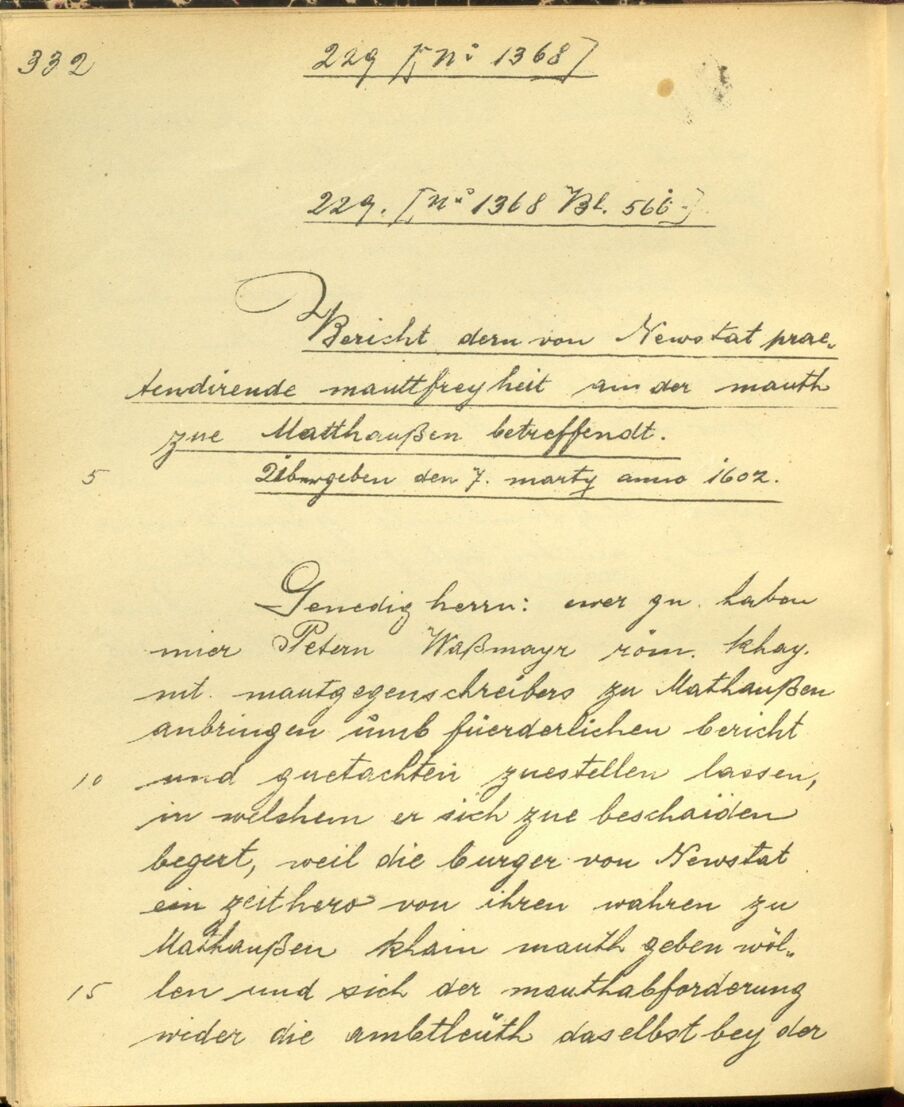 332
229 [No 1368]
229. [No 1368 Bl. 566]
Bericht dern von Newstat prae„
tendirende mauttfreyheit an der mauth
zue Matthaußen betreffendt.
5 Übergeben den 7. marty anno 1602.
Genedig herrn: ewer gn. haben
mier Petern Waßmayr röm. khay.
mt. mautgegenschreibers zu Mathaußen
anbringen umb füerderlichen bericht
10 und guetachten zuestellen lassen,
in welshem er sich zue beschaiden
begert, weil die burger von Newstat
ein zeithero von ihren wahren zu
Mathaußen khain mauth geben wöl„
15 len und sich der mauthabforderung
wider die ambtleüth daselbst bey der